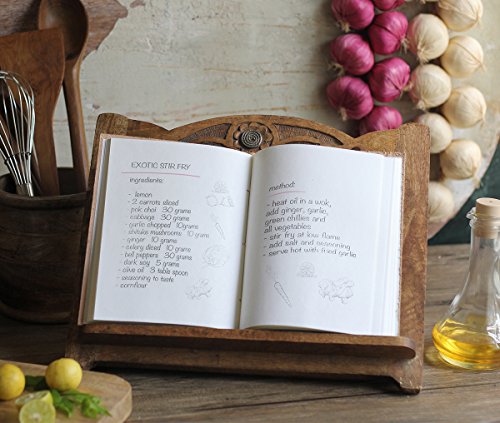 EXOTIC STIR FRY
ingredients:
- lemon
- 2 carrots diced
pok choi 30 grams
- cabbage 30 grams
- garlic chopped 10grams
- shitake mushrooms 10grams
- ginger 10 grams
- celery diced 10 grams
- bell peppers 30 grams
- dark soy 5 grams
- olive oil 3 table spoon
- seasoning to taste
- cornflour
method:
- heat oil in a wok,
add ginger, garlic,
green chillies and
all vegetables
- stir fry at low flame
- add salt and seasoning
- serve hot with fried garlic